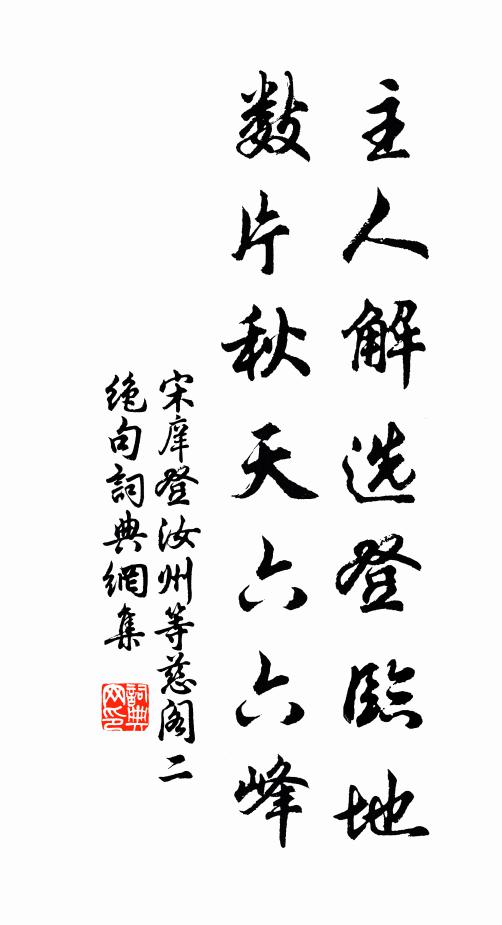 主人解选登臨地
数片秋天六六峰
宋庠登汝州等慈阁二
绝句詞典網集
詞典
网印